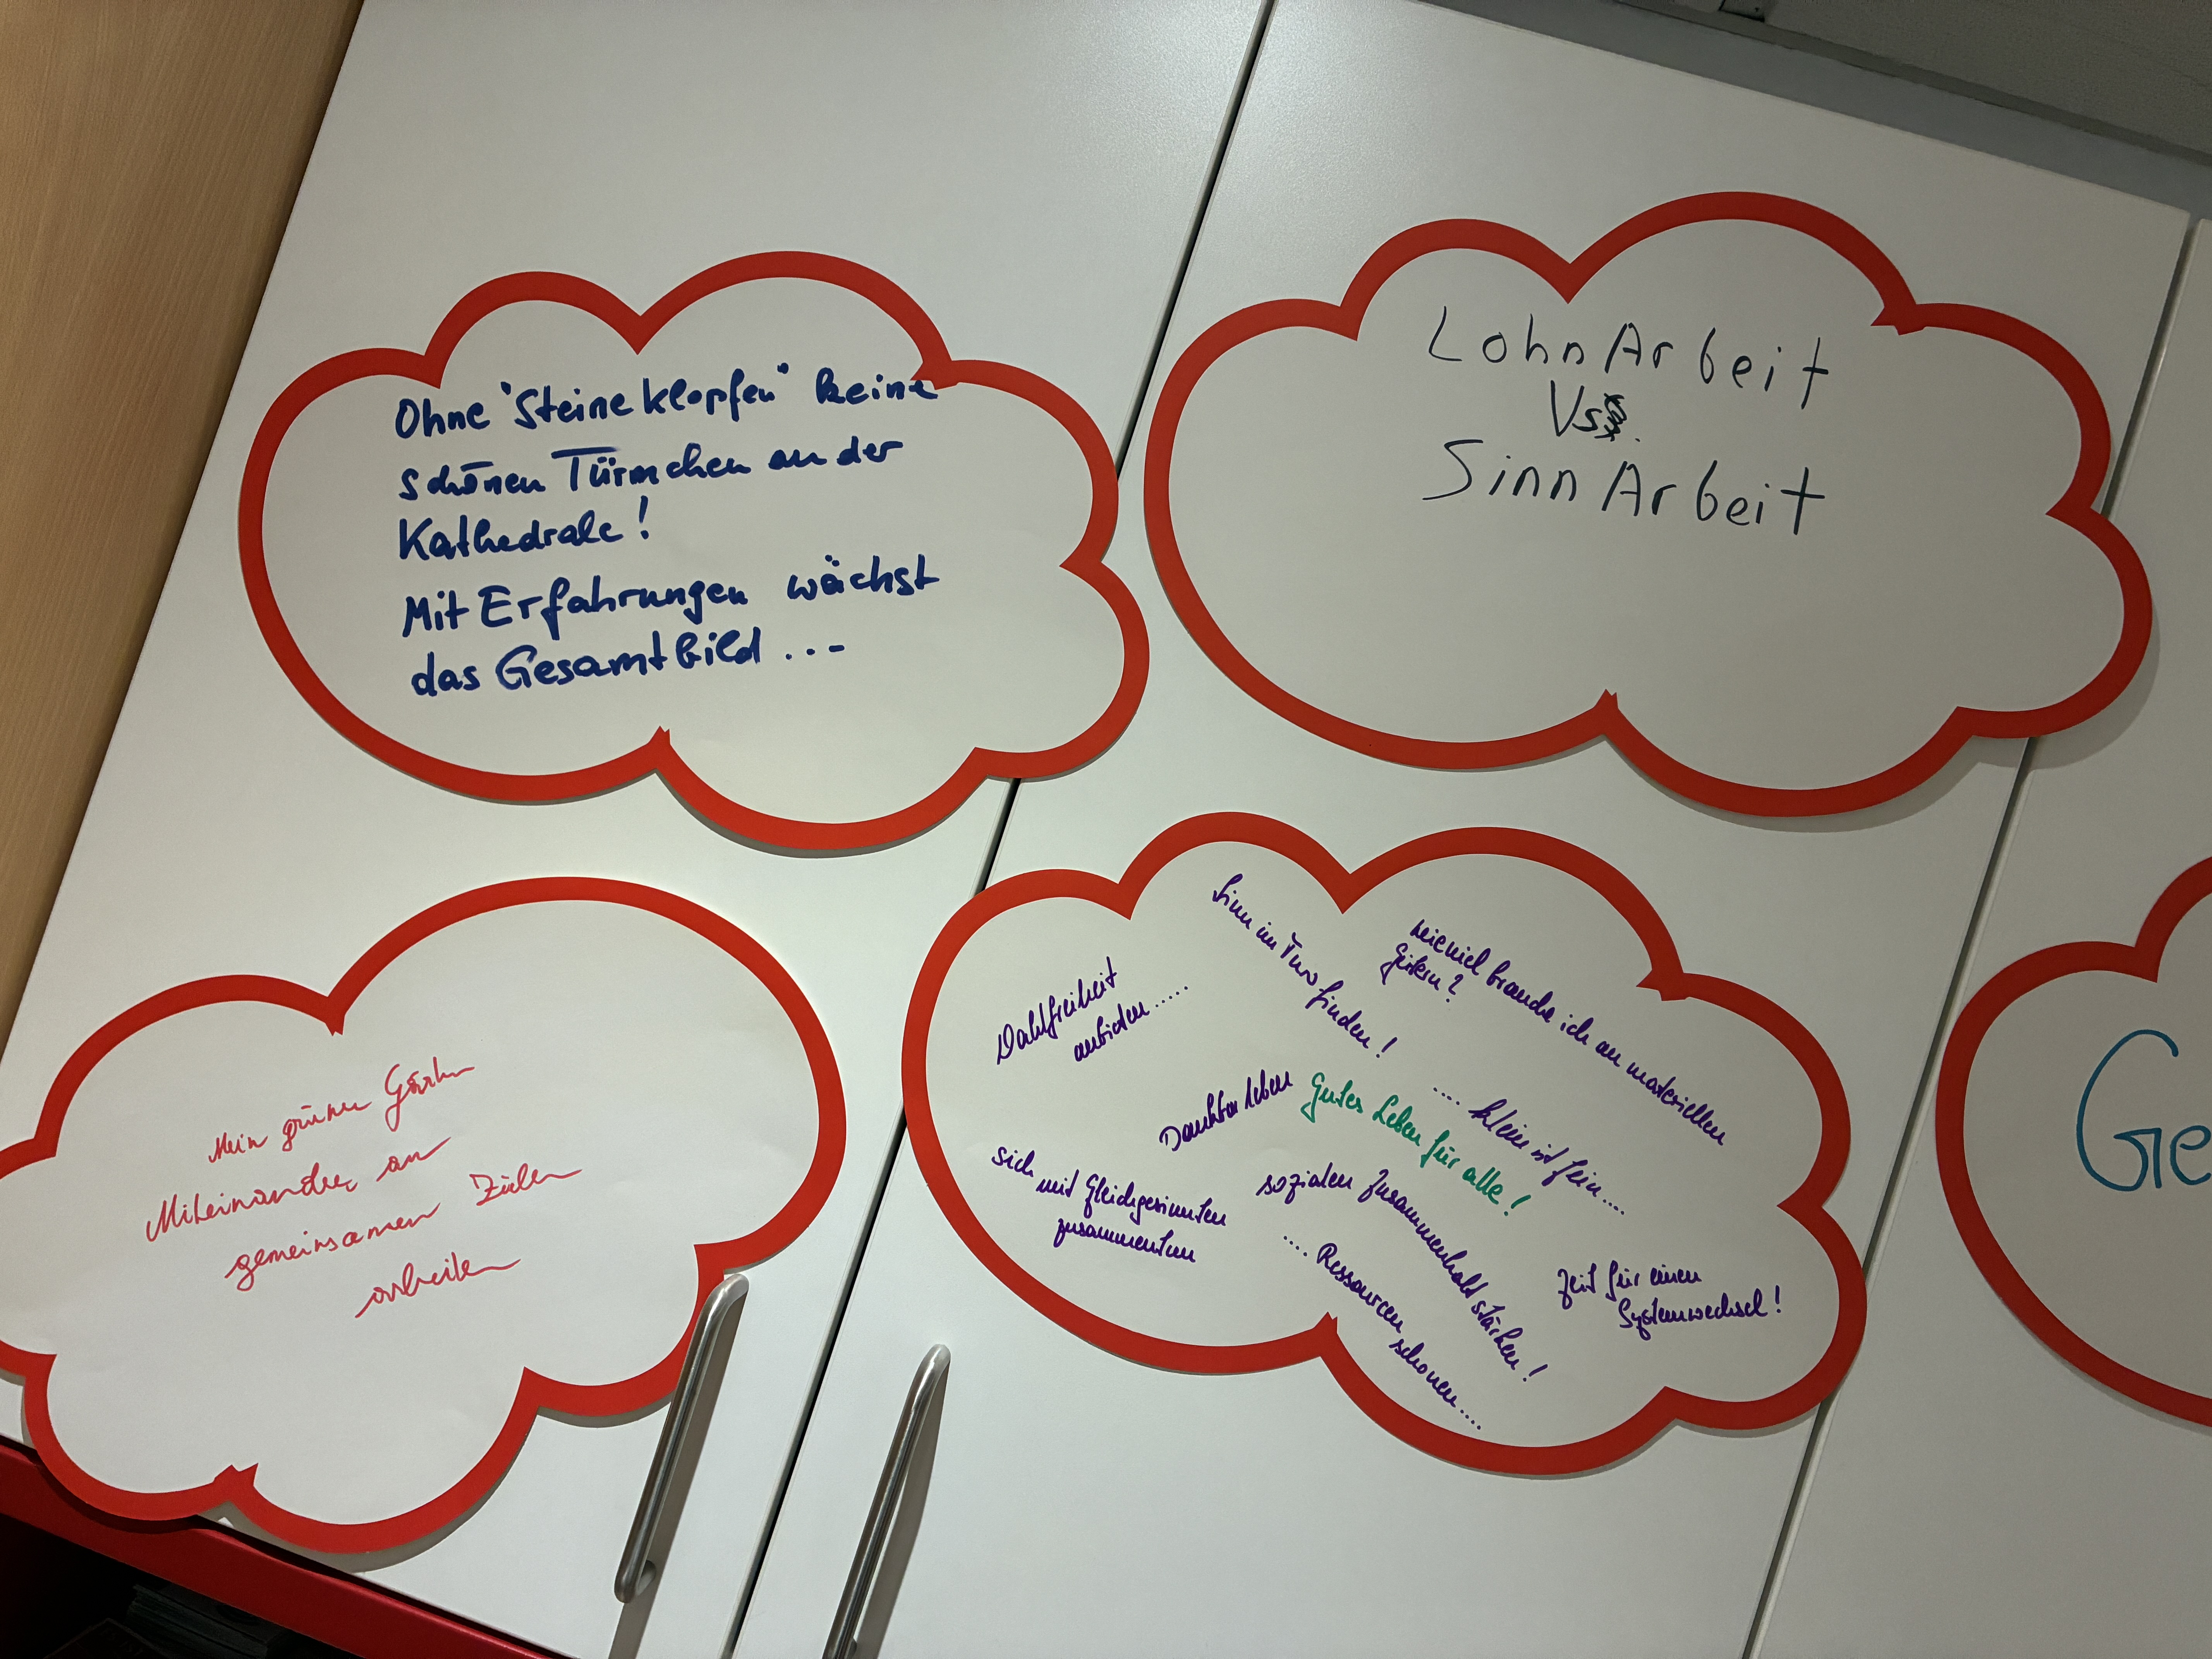 Ohne "Steine klopfen" keine
schönen Türmchen an der
Kathedrale!
Mit Erfahrungen wächst
das Gesamtbild ...
LohnArbeit
Vs.
SinnArbeit
Mein grüner Garten
Miteinander an
gemeinsamen Zielen
arbeiten
Sinn im Tun finden!
wieviel brauche ich an materiellen
Gütern?
Wahlfreiheit
anbieten .....
Dankbar leben
Gutes Leben für alle!
.... klein ist fein ....
sich
mit Gleichgesinnten
zusammentun
sozialen Zusammenhalt stärken!
.... Ressourcen schonen ....
Zeit für einen
Systemwechsel!
Ge